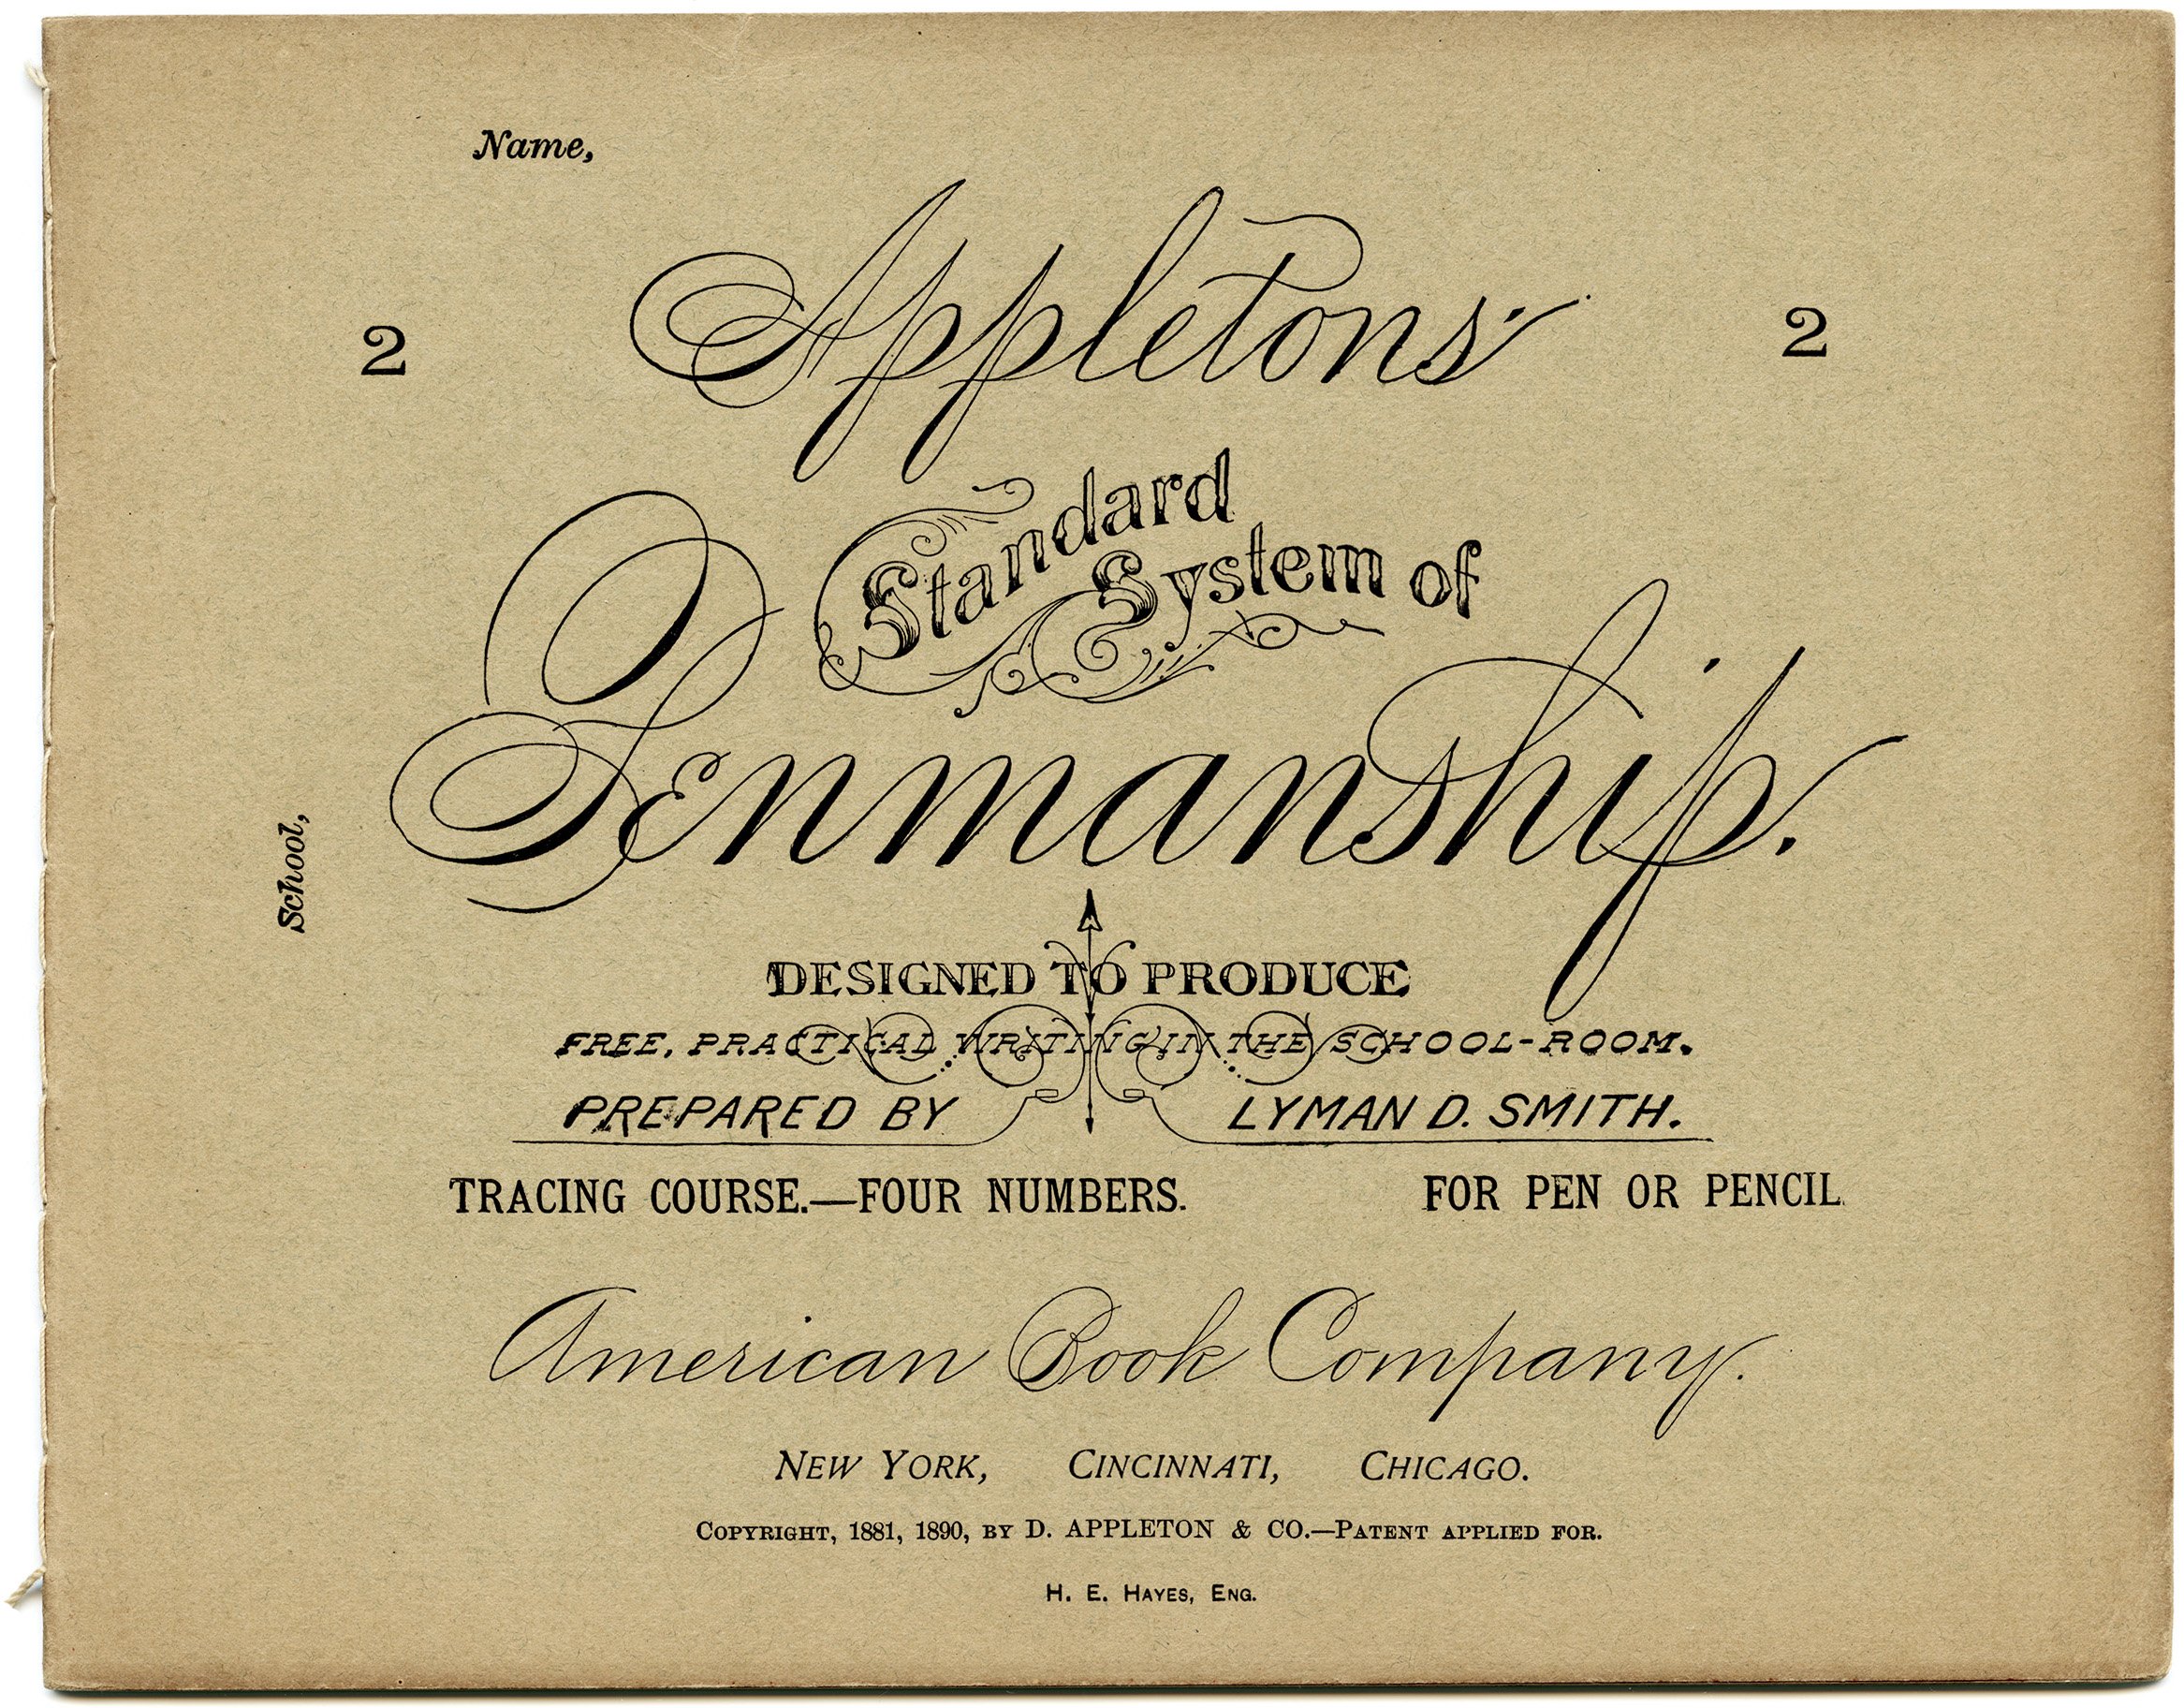 Name,
Appletons'
2
2
Standard
System of
Penmanship.
School,
DESIGNED TO PRODUCE
FREE, PRACTICAL WRITING IN THE SCHOOL-ROOM.
PREPARED BY LYMAN D. SMITH.
TRACING COURSE.—FOUR NUMBERS. FOR PEN OR PENCIL.
American Book Company.
NEW YORK, CINCINNATI, CHICAGO.
COPYRIGHT, 1881, 1890, BY D. APPLETON & CO.—PATENT APPLIED FOR.
H. E. HAYES, ENG.